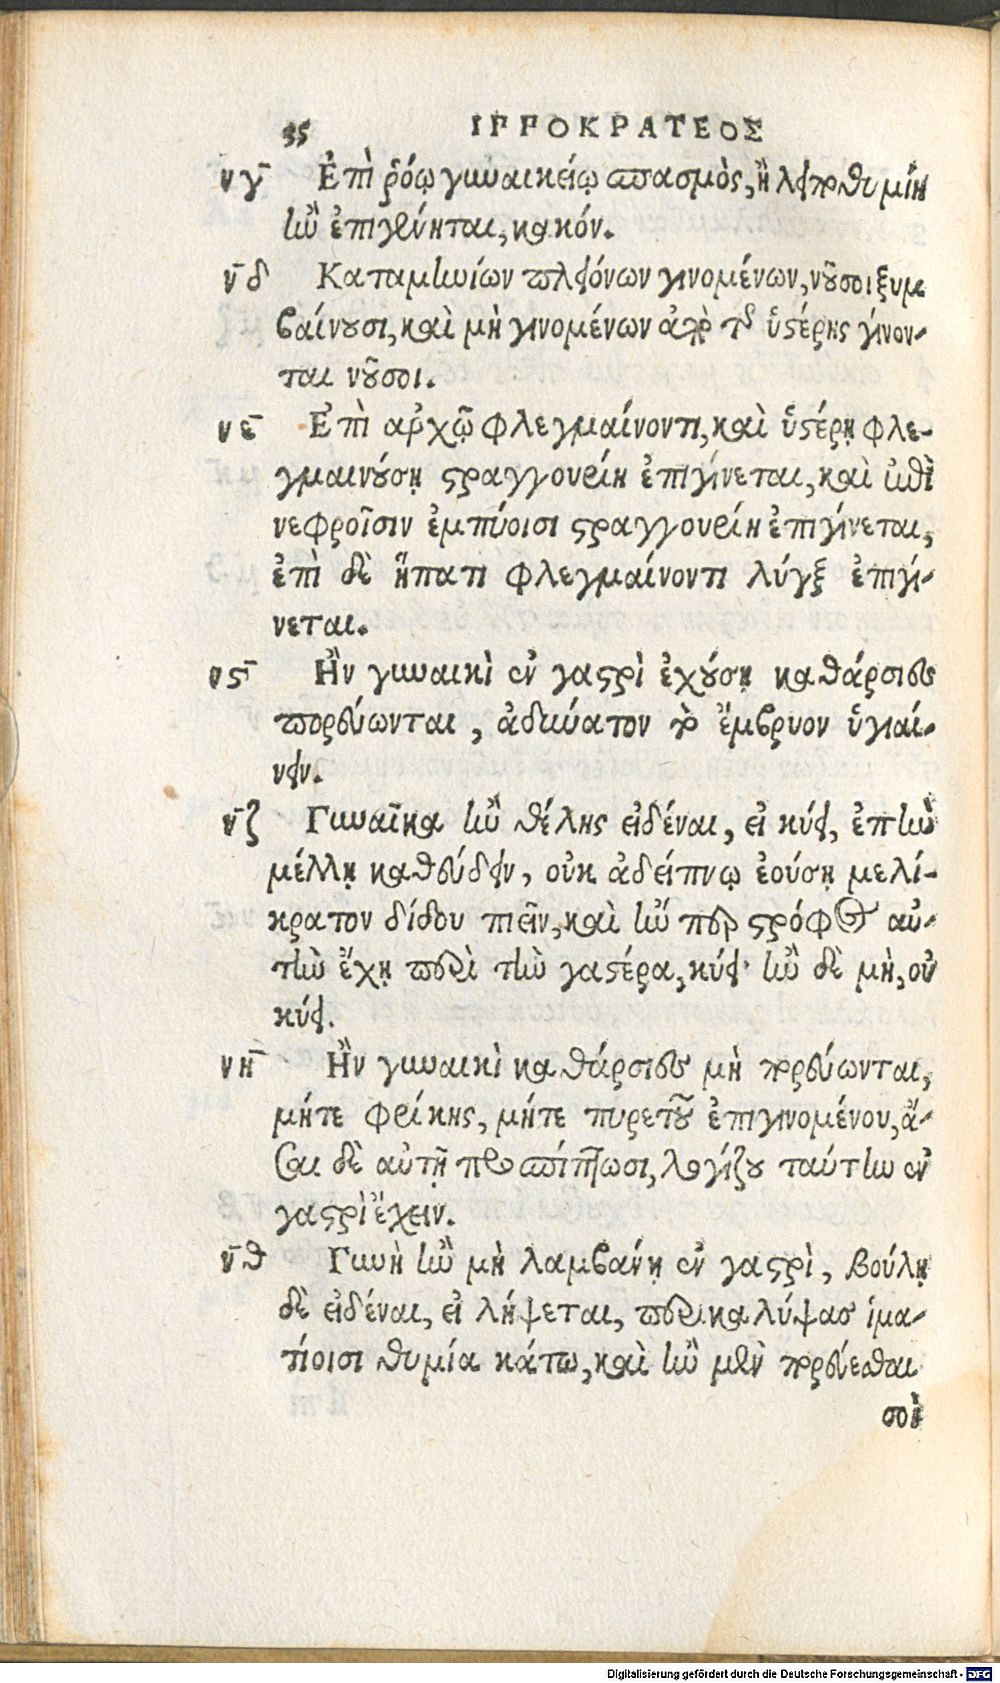 35 ΙΠΠΟΚΡΑΤΕΟΣ
νγ Ἐπὶ ῥόῳ γυναικείῳ σπασμὸς, ἢ λειποθυμίη
ἢν ἐπιγένηται, κακόν.
νδ Καταμηνίων πλειόνων γινομένων, νοῦσοι ξυμ
βαίνουσι, καὶ μὴ γινομένων ἀπὸ τῆς ὑστέρης γίνον-
ται νοῦσοι.
νε Ἐπὶ ἀρχῷ φλεγμαίνοντι, καὶ ὑστέρῃ φλε-
γμαινούσῃ στραγγουρίη ἐπιγίνεται, καὶ ἐπὶ
νεφροῖσιν ἐμπύοισι στραγγουρίη ἐπιγίνεται,
ἐπὶ δὲ ἥπατι φλεγμαίνοντι λύγξ ἐπιγί-
νεται.
νϛ Ἢν γυναικὶ ἐν γαστρὶ ἐχούσῃ καθάρσιες
πορεύωνται, ἀδύνατον τὸ ἔμβρυον ὑγιαί-
νειν.
νζ Γυναῖκα ἢν θέλῃς εἰδέναι, εἰ κύει, ἐπὴν
μέλλῃ καθεύδειν, οὐκ ἀδείπνῳ ἐούσῃ μελί-
κρατον δίδου πιεῖν, καὶ ἢν περ στρόφος αὐ-
τὴν ἔχῃ περὶ τὴν γαστέρα, κύει· ἢν δὲ μὴ, οὐ
κύει.
νη Ἢν γυναικὶ καθάρσιες μὴ πορεύωνται,
μήτε φρίκης, μήτε πυρετοῦ ἐπιγινομένου, ἄ-
σαι δὲ αὐτῇ προσπίπτωσι, λογίζου ταύτην ἐν
γαστρὶ ἔχειν.
νθ Γυνὴ ἢν μὴ λαμβάνῃ ἐν γαστρὶ, βούλῃ
δὲ εἰδέναι, εἰ λήψεται, περικαλύψας ἱμα-
τίοισι θυμία κάτω, καὶ ἢν μὲν πορεύεσθαι
σοὶ
Digitalisierung gefördert durch die Deutsche Forschungsgemeinschaft - DFG